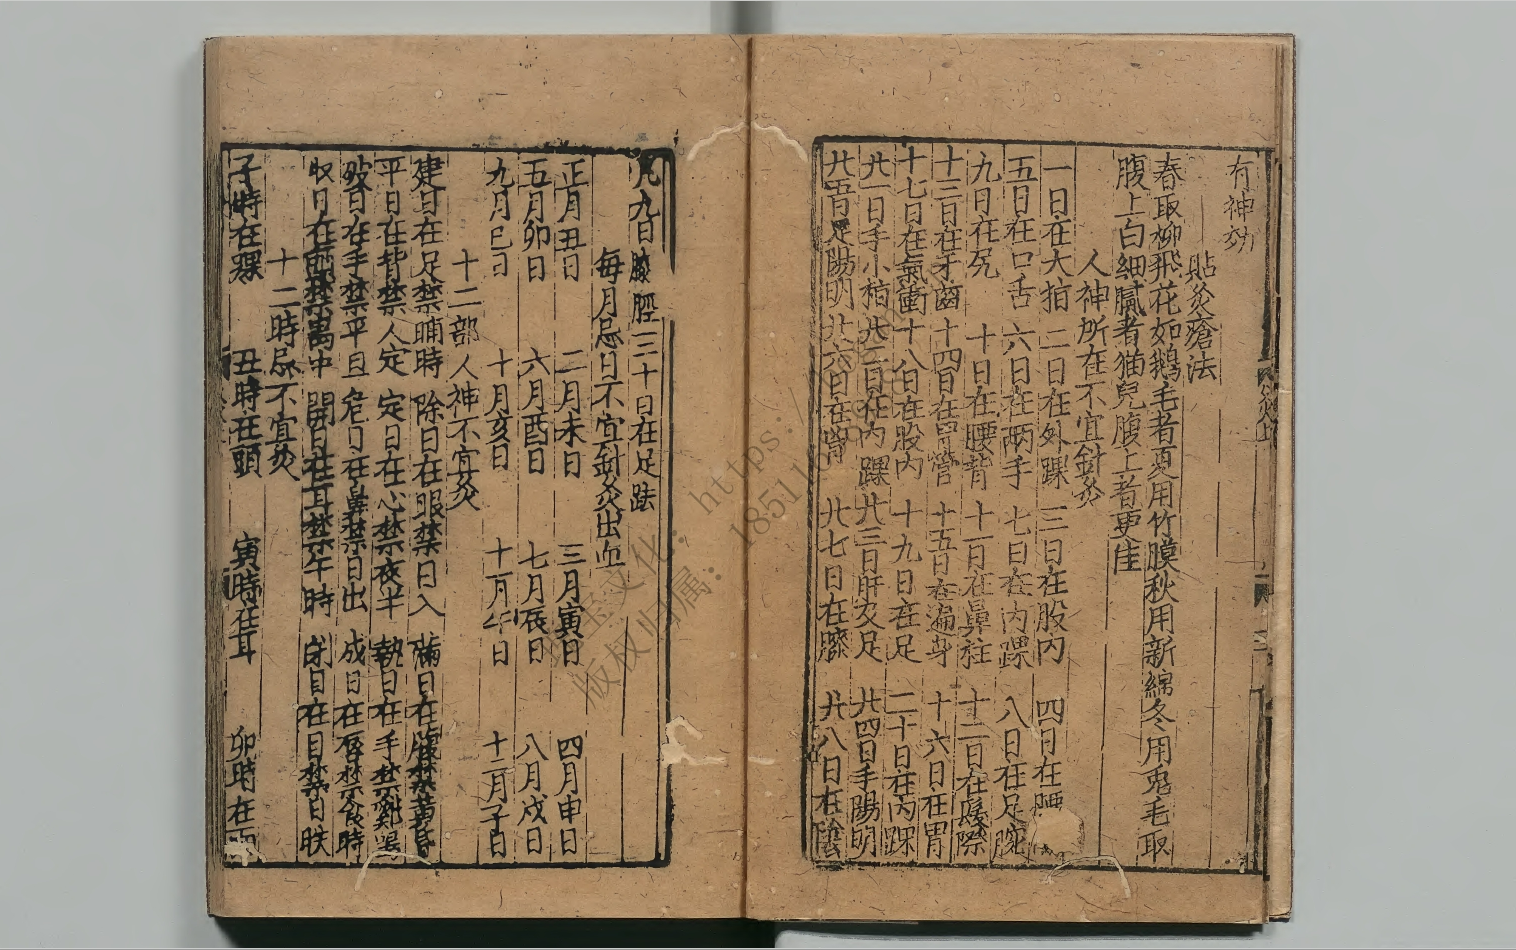 有神効
貼灸瘡法
春取柳飛花如鵝毛者夏用竹膜秋用新綿冬用兎毛取
腹上白細膩者猫兒腹上者更佳
人神所在不宜針灸
一日在大指 二日在外踝 三日在股内 四日在腰
五日在口舌 六日在兩手 七日在内踝 八日在足腕
九日在尻 十日在腰背 十一日在鼻柱 十二日在髮際
十三日在牙齒 十四日在胃管 十五日在遍身 十六日在胃
十七日在氣衝 十八日在股内 十九日在足 二十日在内踝
廿一日手小指 廿二日在外踝 廿三日肝及足 廿四日手陽明
廿五日足陽明 廿六日在胷 廿七日在膝 廿八日在陰
廿九日膝脛 三十日在足趺
每月忌日不宜針灸出血
正月丑日 二月未日 三月寅日 四月申日
五月卯日 六月酉日 七月辰日 八月戍日
九月巳日 十月亥日 十一月午日 十二月子日
十二部人神不宜灸
建日在足禁晡時 除日在眼禁日入 滿日在腹禁黃昏
平日在背禁人定 定日在心禁夜半 執日在手禁雞鳴
破日在手禁平旦 危日在鼻禁日出 成日在唇禁食時
收日在頭禁禺中 開日在耳禁午時 閉日在目禁日昳
十二時忌不宜灸
子時在踝 丑時在頭 寅時在耳 卯時在面
https://
版权归属：
18511